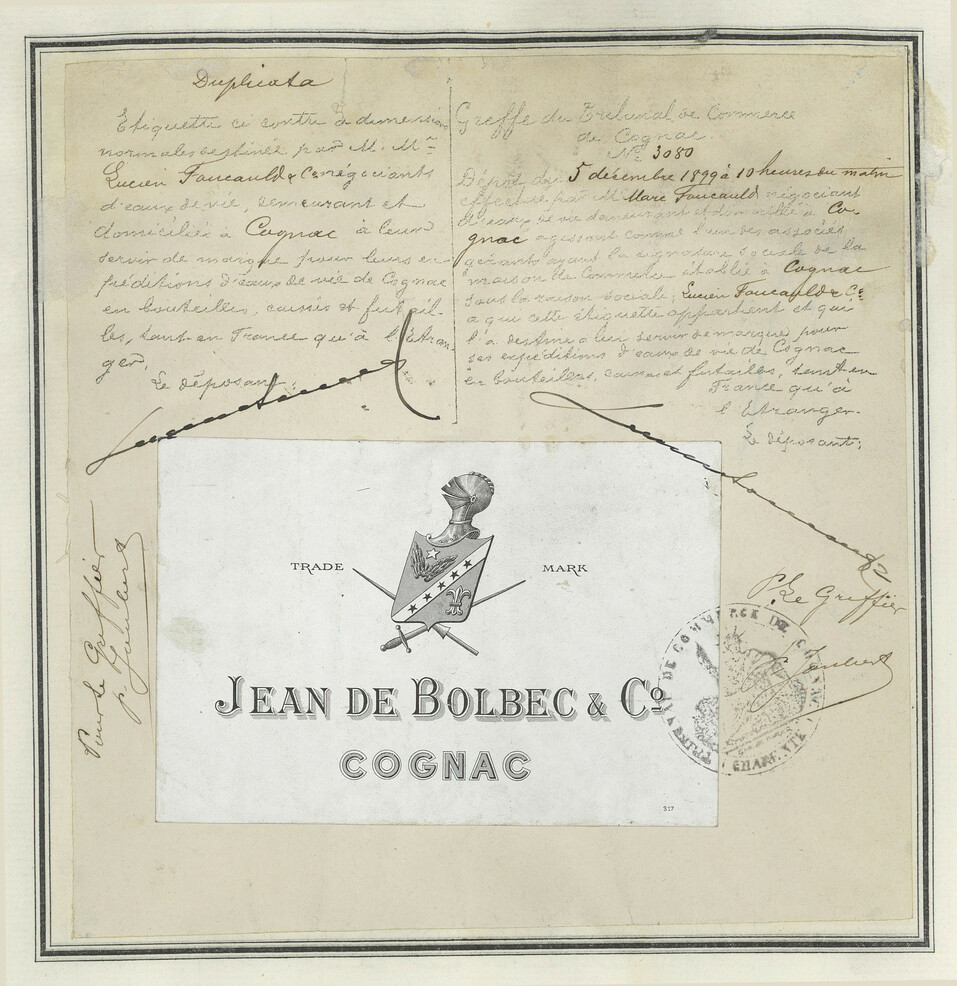 Duplicata
Etiquette ci contre à dimension
normales destinée par M. M<sup>rs</sup>
Lucien Foucauld & Cie négociants
d'eaux de vie, demeurant et
domiciliés à Cognac à leur
servir de marque pour leurs ex-
péditions d'eaux de vie de Cognac
en bouteilles, caisses et futail-
les, tant en France qu'à l'Etran-
ger.
Le déposant:
Greffe du Tribunal de Commerce
de Cognac.
No 3080
Dépôt du 5 décembre 1899 à 10 heures du matin
effectué par M. Marc Foucauld négociant
d'eaux de vie demeurant et domicilié à Co-
gnac agissant comme l'un des associés
gérants ayant la signature sociale de la
maison de Commerce établie à Cognac
sous la raison sociale, Lucien Foucauld & Cie
à qui cette étiquette appartient et qui
l'a destinée à leur servir de marque, pour
ses expéditions d'eaux de vie de Cognac
en bouteilles, caisses et futailles, tant en
France qu'à
l'Etranger.
Le déposant:
Pour Le Greffier
P. Le Greffier
TRADE MARK
JEAN DE BOLBEC & Co
COGNAC
317
TRIBUNAL DE COMMERCE DE COGNAC
CHARENTE